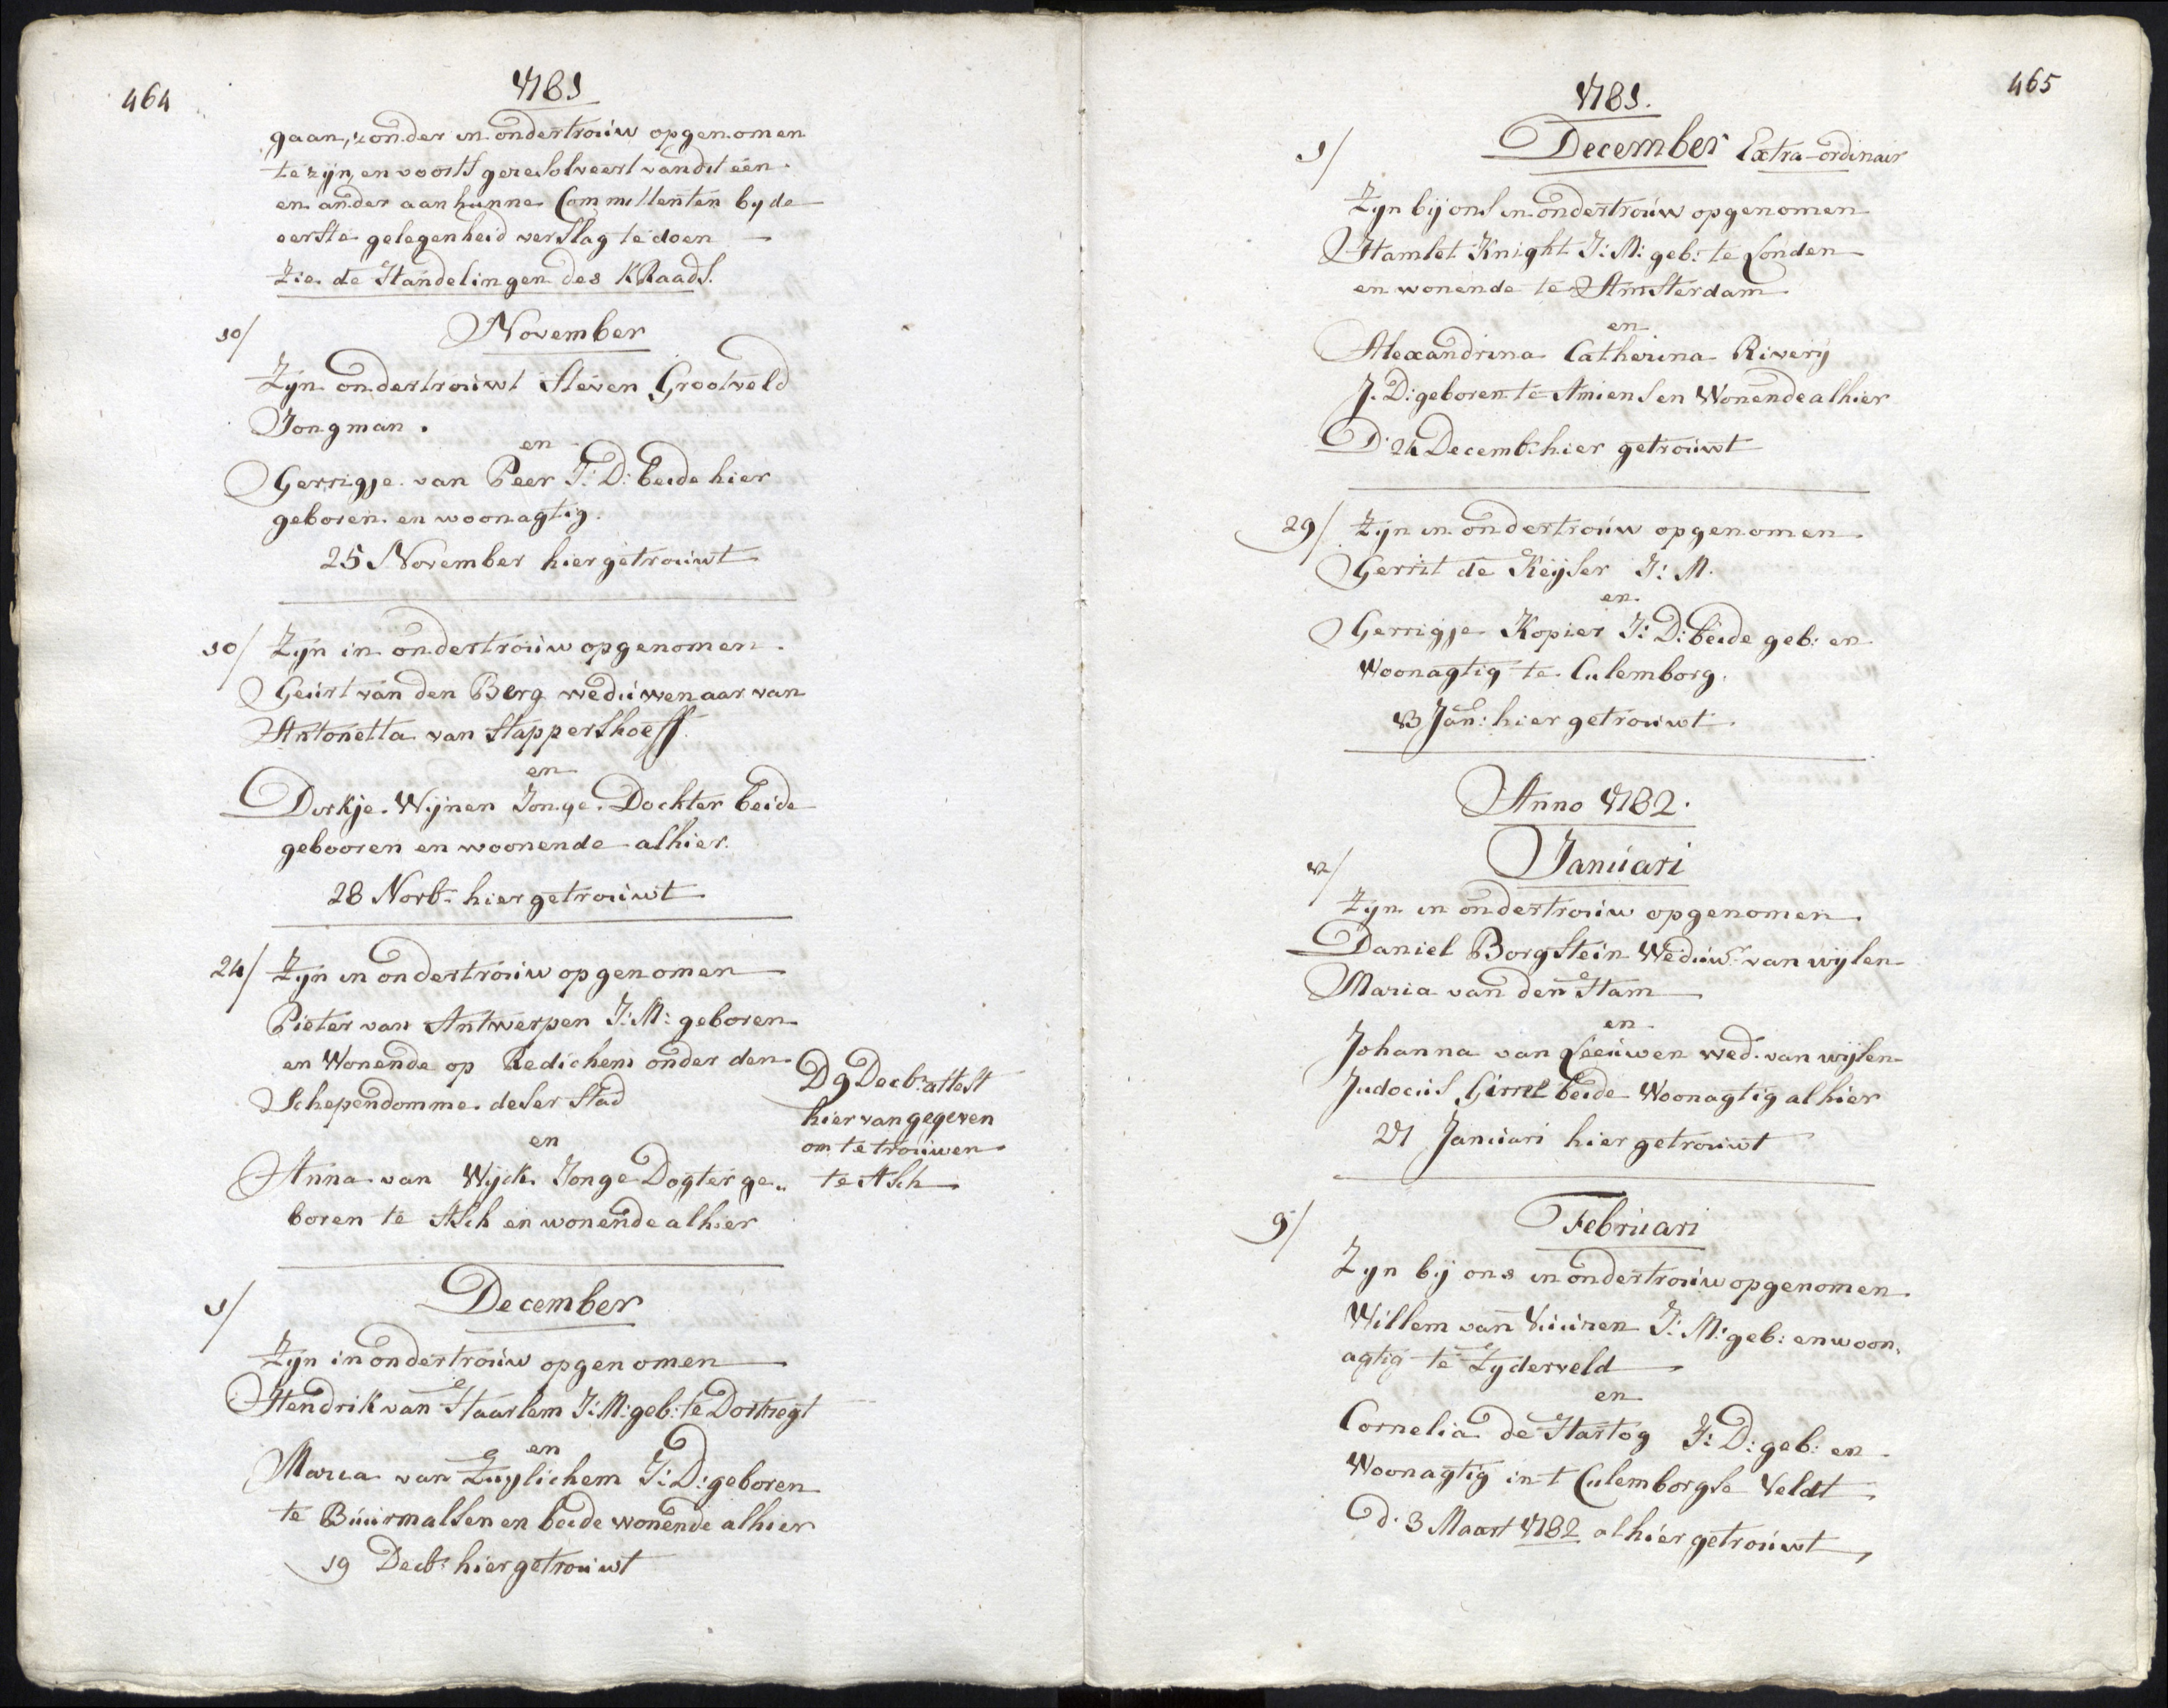 464
1781
gaan, zonder in ondertrouw opgenomen
te zijn, en voorts geresolveert van dit een
en ander aan hunne Committenten by de
eerste gelegenheid verslag te doen
Zie de Handelingen des KRaads.
10/ November
Zijn ondertrouwt Steven Grootveld
Jongman.
en
Gerrigje van Peer J: D: beide hier
geboren en woonagtig.
25 November hier getrouwt
10/ Zyn in ondertrouw opgenomen
Geurt van den Berg weduwenaar van
Antonetta van Stappershoeff.
en
Dirkje Wijnen Jonge Dochter beide
gebooren en woonende alhier.
28 Novb: hier getrouwt
24/ Zyn in ondertrouw opgenomen
Pieter van Antwerpen J: M: geboren
en Wonende op Redichem onder den
Schependomme deser Stad
en
Anna van Wyck Jonge Dogter ge„
boren te Asch en wonende alhier
D 9 Decbr attest
hier van gegeven
om te trouwen
te Asch
1/ December
Zyn in ondertrouw opgenomen
Hendrik van Haarlem J: M: geb: te Dortregt
en
Maria van Zuylichem J: D: geboren
te Buurmalsen en beide wonende alhier
19 Decbr hier getrouwt
465
1781.
1/ December Extra-ordinair
Zyn bij ons in ondertrouw opgenomen
Hamlet Knight J: M: geb: te Londen
en wonende te Amsterdam
en
Alexandrina Catharina Rivery
J. D: geboren te Amiens en Wonende alhier
D: 24 Decemb: hier getrouwt
29/ Zyn in ondertrouw opgenomen
Gerrit de Keyser J: M.
en
Gerrigje Kopier J: D: beide geb: en
Woonagtig te Culemborg.
13 Jan: hier getrouwt.
Anno 1782.
12/ Januari
Zyn in ondertrouw opgenomen
Daniel Borgstein Weduwr van wylen
Maria van den Ham
en
Johanna van Leeuwen wed: van wijlen
Judocus beide Woonagtig alhier
27 Januari hier getrouwt
9/ Februari
Zyn bij ons in ondertrouw opgenomen
Willem van Vuuren J: M: geb: en woon„
agtig te Zyderveld
en
Cornelia de Hartog J: D: geb: en
Woonagtig in t Culemborgse Veldt
d. 3 Maart 1782 alhier getrouwt